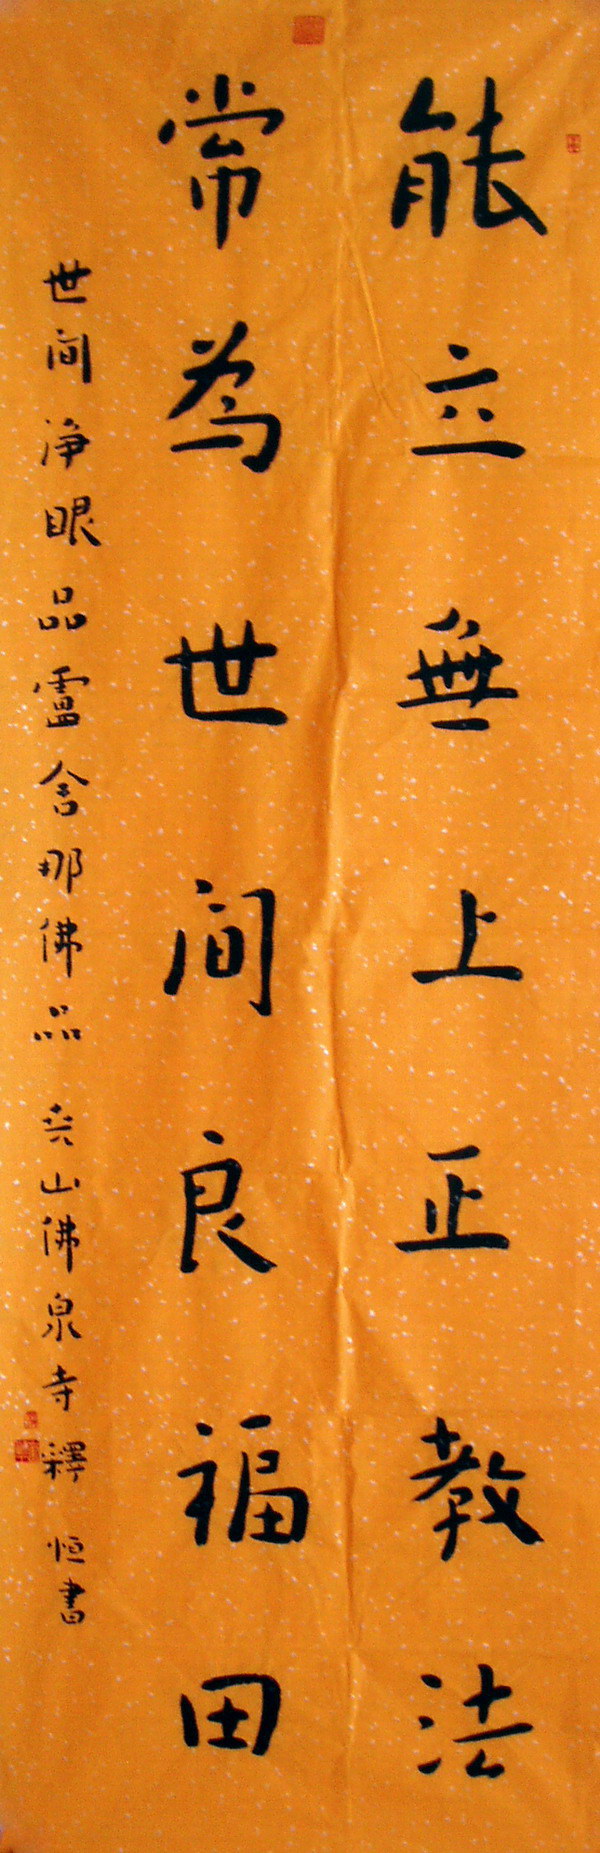 能立無上正教法
常為世间良福田
世间淨眼品盧舍那佛品 尭山佛泉寺釋 恒書